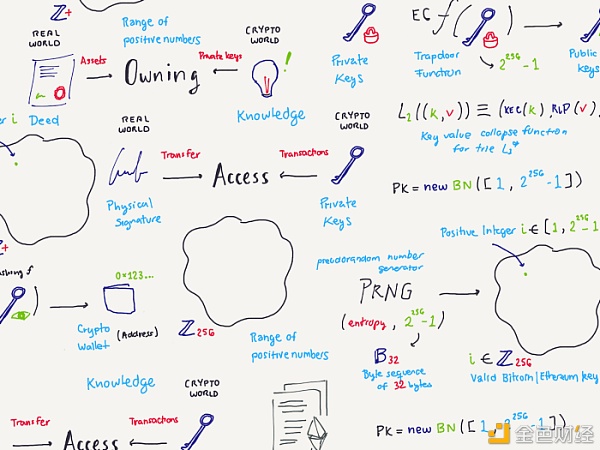 ℤ+
Range of
positive numbers
REAL
WORLD
CRYPTO
WORLD
Assets
Owning
Private keys
!
Deed
Knowledge
Private
Keys
EC f( )
Trapdoor
Function
2^256-1
Public
keys
L₂((k,v)) ≡ (KEC(k), RLP(v),
Key value collapse function
for trie
REAL
WORLD
CRYPTO
WORLD
Transfer
Access
Transactions
Physical
Signature
Private
Keys
PK = new BN([1, 2^256-1])
Positive Integer i ∈ [1, 2^256-1
pseudorandom number
generator
PRNG
(entropy, 2^256-1)
B₃₂
Byte sequence
of 32 bytes
i ∈ ℤ₂₅₆
Valid Bitcoin/Ethereum key
ℤ+
f
)
0x123...
Crypto
Wallet
(Address)
ℤ₂₅₆
Range of
positive numbers
Knowledge
CRYPTO
WORLD
Transfer
Access
Transactions
PK = new BN([1, 2^256-1]),
金色财经